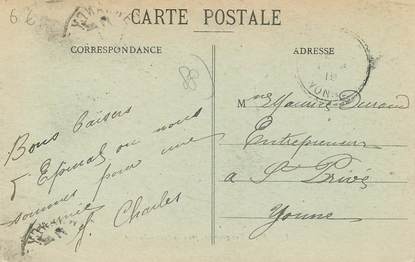 CARTE POSTALE
CORRESPONDANCE
ADRESSE
Bons baisers
d'Epinal ou nous
sommes pour une
Charles
Mme Maurice Durand
Entrepreneur
a St Privé
Yonne